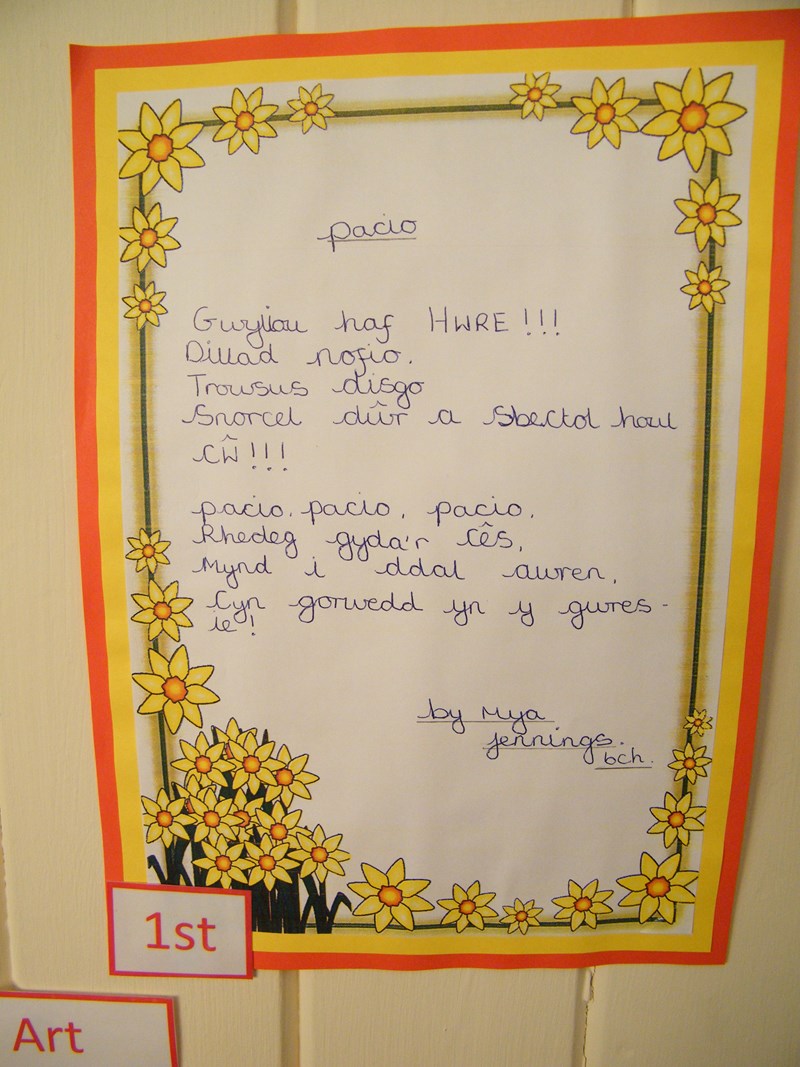 pacio
Gwyliau haf HWRE!!!
Dillad nofio.
Trowsus disgo
Snorcel dŵr a Sbectol haul
cŴ!!!
pacio, pacio, pacio,
Rhedeg gyda'r cês,
Mynd i ddal awren,
Cyn gorwedd yn y gwres -
ie!
by Mya
jennings.
6ch.
1st
Art